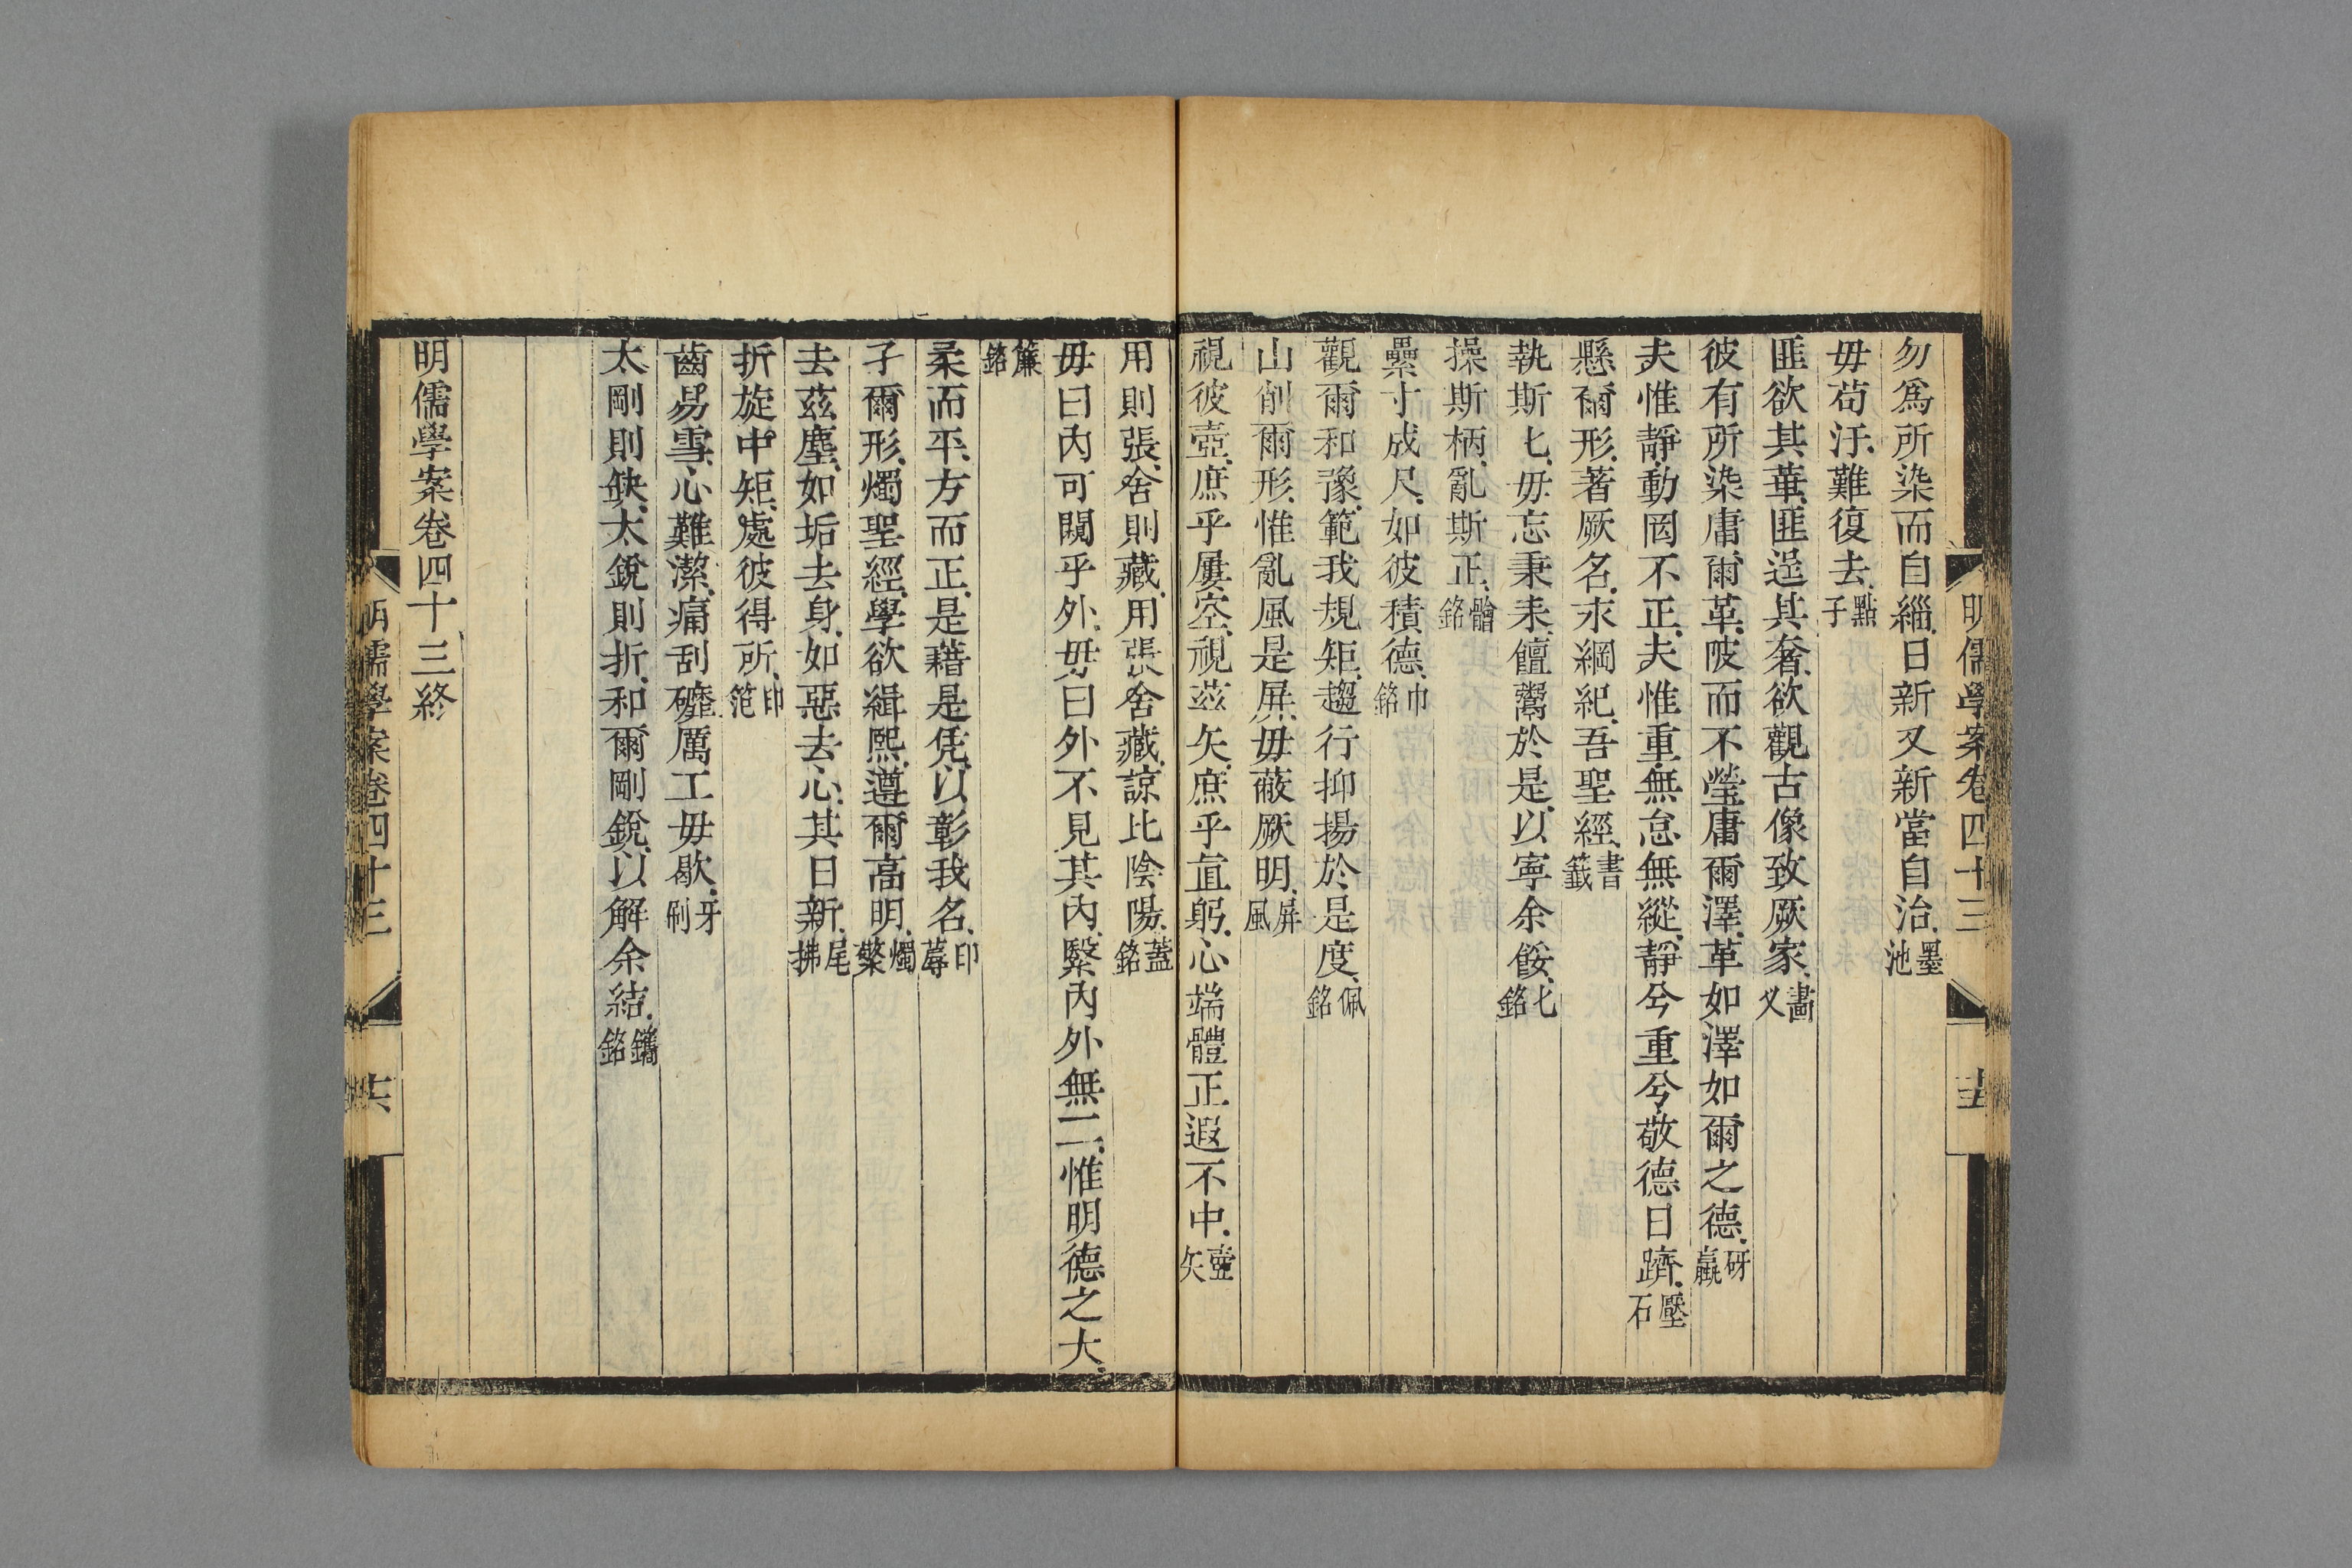 明儒學案卷四十三
勿爲所染而自緇日新又新當自治墨池
毋苟汙難復去點子
匪欲其華匪逞其奢欲觀古像致厥家畵叉
彼有所染庸爾革陂而不瑩庸爾澤革如澤如爾之德砑羸
夫惟靜動罔不正夫惟重無怠無縱靜兮重兮敬德日躋壓石
懸爾形著厥名求綱紀吾聖經書籤
執斯匕毋忘秉耒饘鬻於是以寧余餒匕銘
操斯柄亂斯正鱠銘
纍寸成尺如彼積德巾銘
觀爾和豫範我規矩趨行抑揚於是度佩銘
山削爾形惟亂風是屏毋蔽厥明屏風
視彼壺庶乎屢空視茲矢庶乎直躬心端體正遐不中壺矢
用則張舍則藏用張舍藏諒比陰陽蓋銘
毋曰內可閱乎外毋曰外不見其內緊內外無二惟明德之大
簾銘
柔而平方而正是藉是凭以彰我名印蓐
孑爾形燭聖經學欲緝熙遵爾高明燭檠
去茲塵如垢去身如惡去心其日新尾拂
折旋中矩處彼得所印笵
齒易雪心難潔痛刮磨厲工毋歇牙刷
太剛則缺太銳則折和爾剛銳以解余結鐫銘
明儒學案卷四十三終
明儒學案卷四十三
六